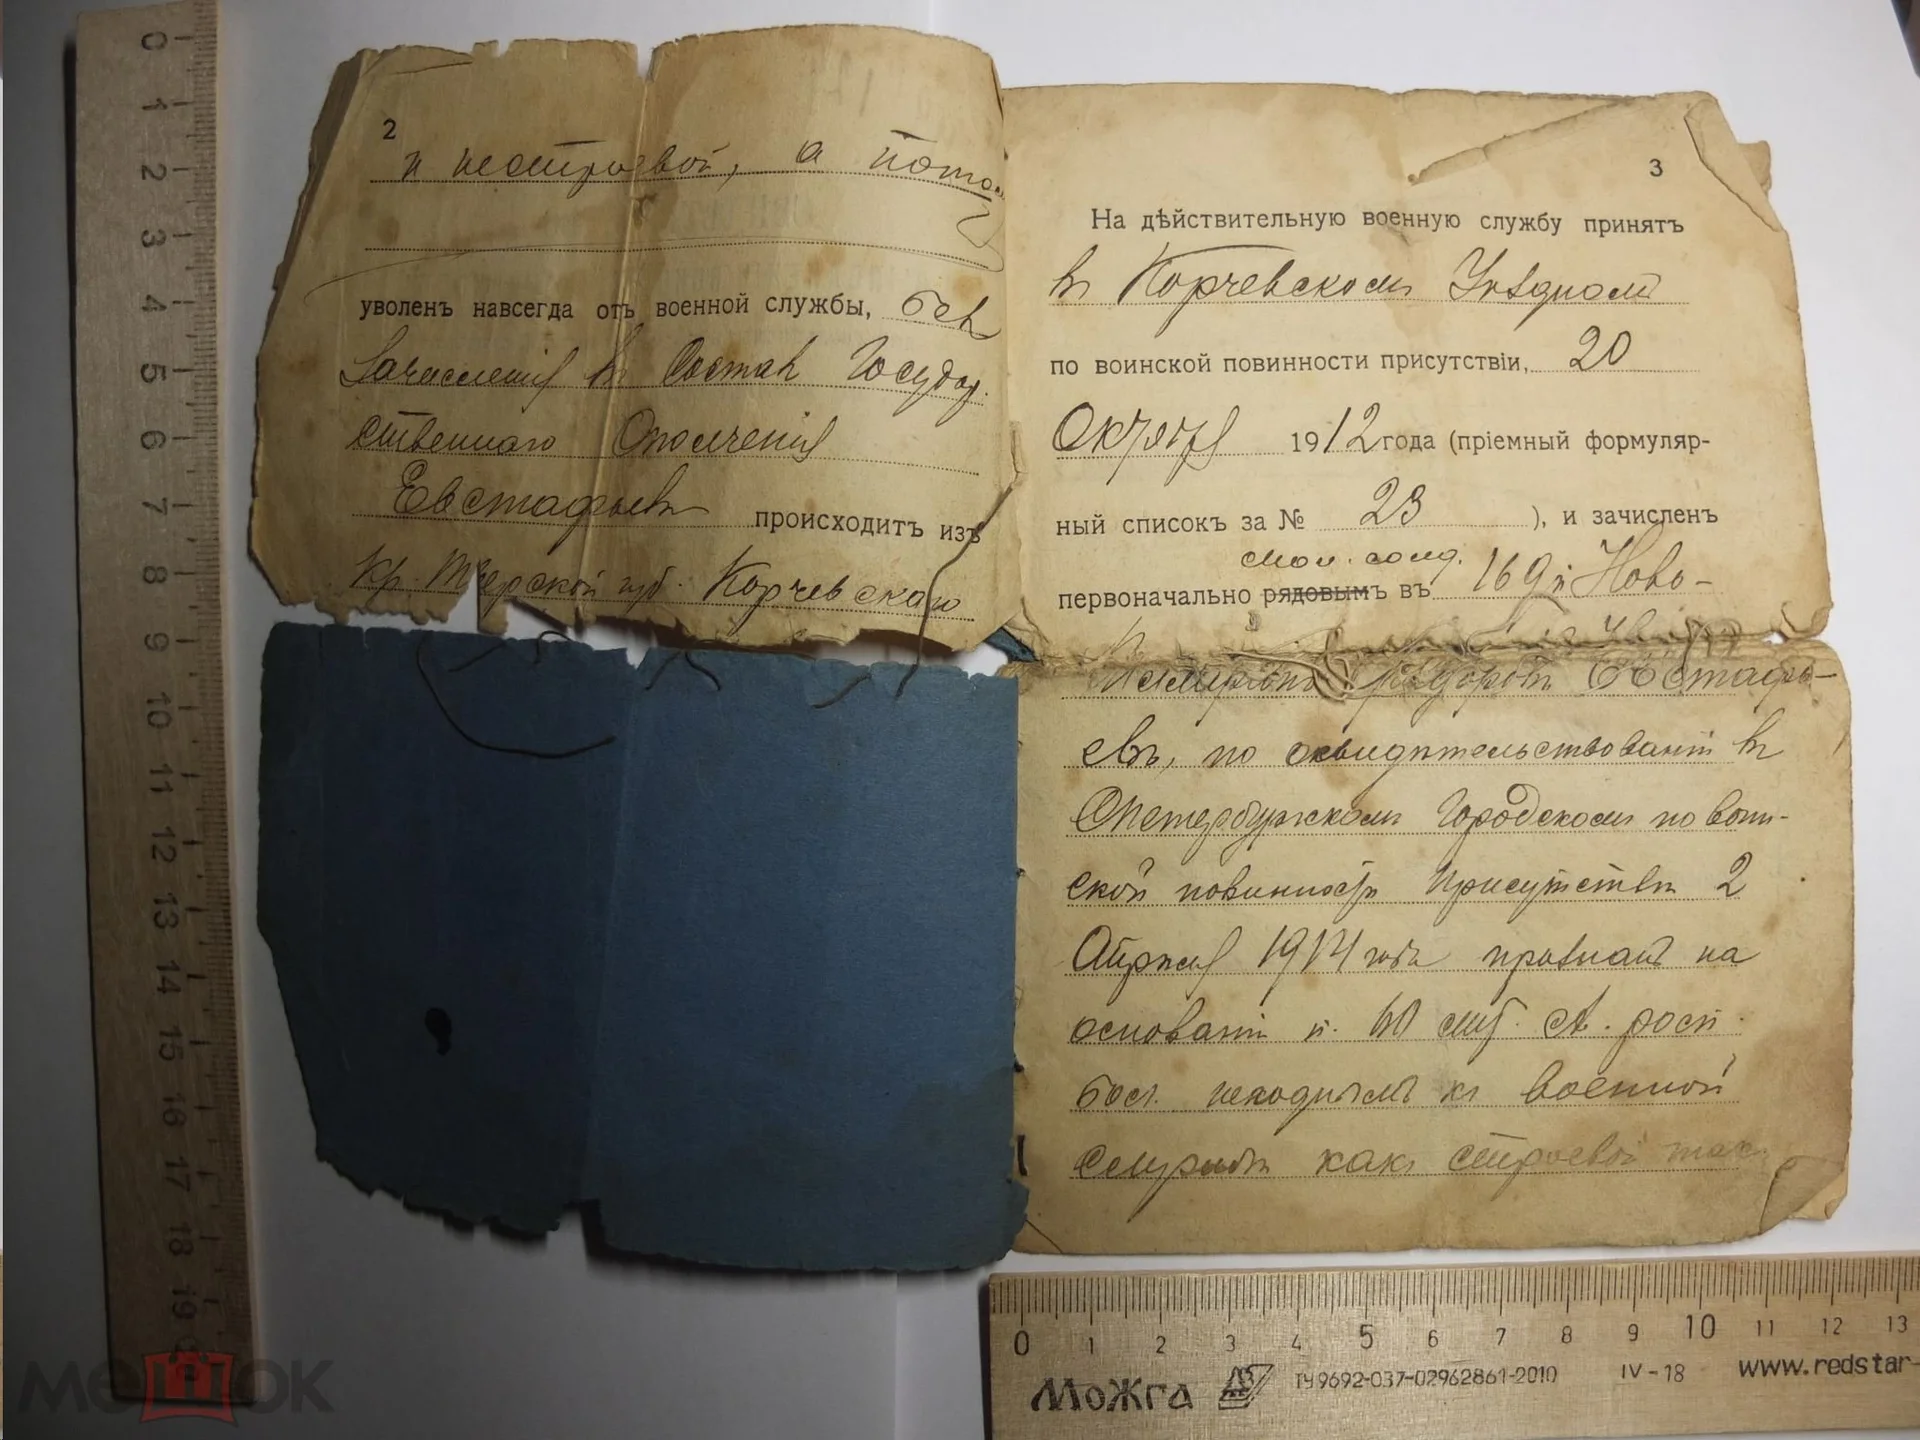 2
и нестроевой, а пото
уволенъ навсегда отъ военной службы, безъ
Зачисленія въ Составъ Государ
ственнаго Ополченія
Евстафьевъ происходитъ изъ
Кр. Тверской губ. Корчевскаго
3
На дѣйствительную военную службу принятъ
въ Корчевскомъ Уѣздномъ
по воинской повинности присутствіи, 20
Октября 1912 года (пріемный формуляр-
ный списокъ за № 23 ), и зачисленъ
мол. солд.
первоначально рядовымъ въ 169й Ново-
Ѳедоръ Евстафь-
евъ, по освидѣтельствованіи въ
СПетербургскомъ Городскомъ по воин-
ской повинности Присутствіи 2
Апрѣля 1914 года признанъ на
основаніи п. лит. А. росп.
бол. негоднымъ къ военной
службѣ какъ строевой так
0 1 2 3 4 5 6 7 8 9 10 11 12 13 14 15 16 17 18 19
0 1 2 3 4 5 6 7 8 9 10 11 12 13
МоЖга ТУ9692-037-02962861-2010 IV-18 www.redstar-
мешок